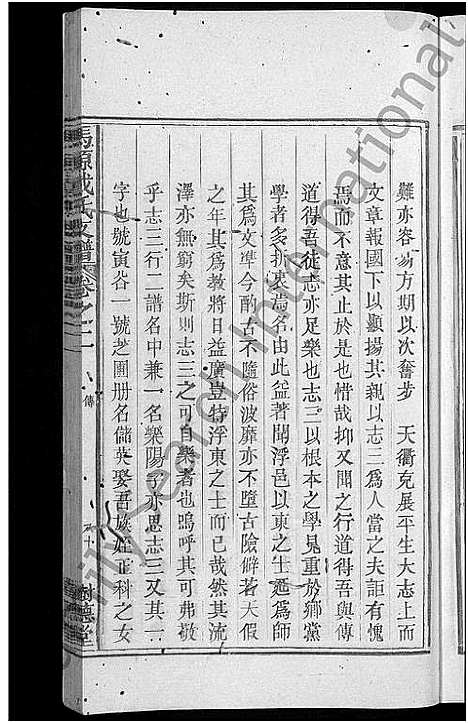 難亦容易方期以次奮步 天衢克展平生大志上而
文章報國下以顯揚其親以志三爲人當之夫詎有愧
焉而不意其止於是也惜哉抑又聞之行道得吾與傳
道得吾徒志亦足樂也志三以根本之學見重於鄉黨
學者多折衷焉名由此益著聞浮邑以東之士遞爲師
其爲文準今酌古不隨俗波靡亦不墮古險僻若天假
之年其爲教將日益廣豈特浮東之士而已哉然其流
澤亦無窮矣斯則志三之可自樂者也嗚呼其可弗敬
乎志三行二譜名中兼一名樂陽子亦思志三又其一
字也號寅谷一號芝圃册名儲英娶吾族姪正科之女
馬源戴氏支譜 卷之二
傳
樹德堂
International